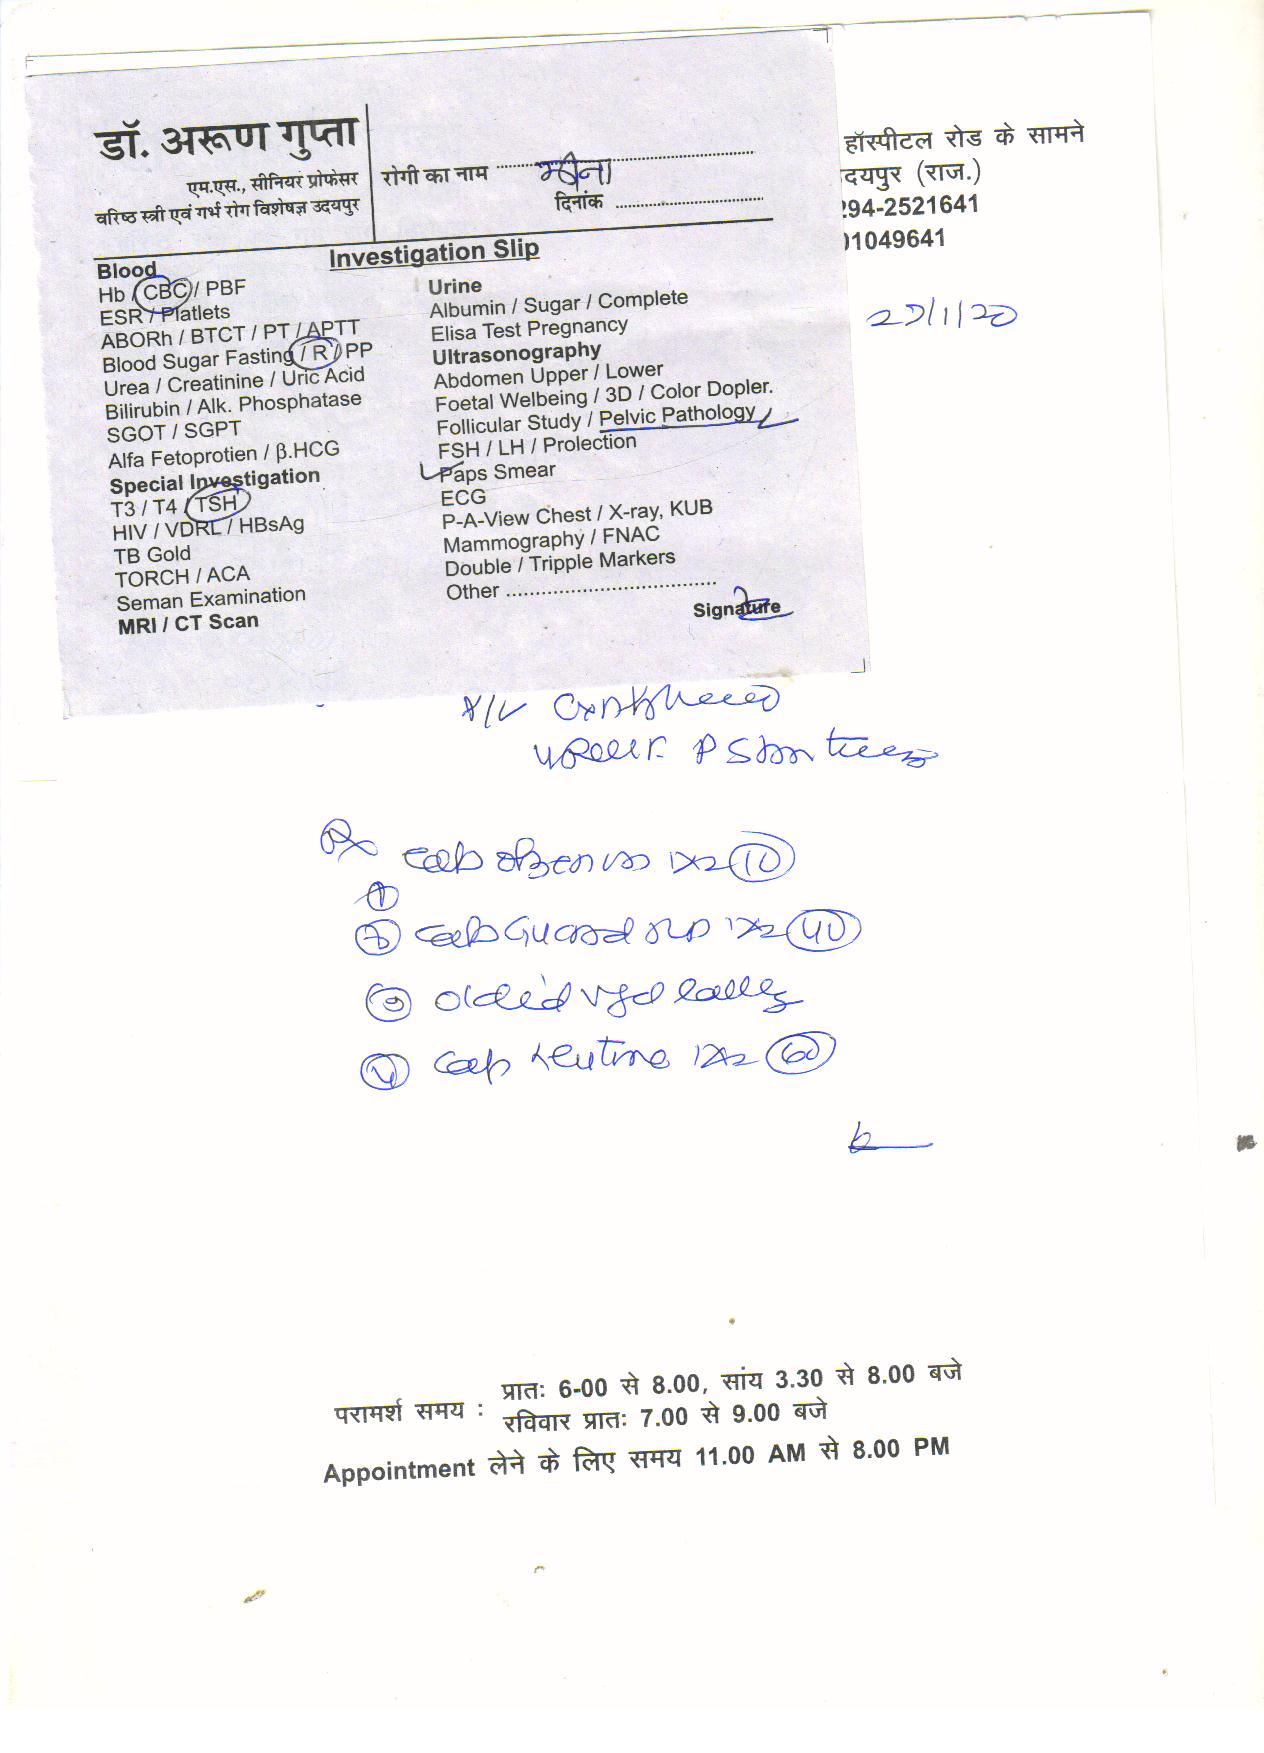 डॉ. अरूण गुप्ता
एम.एस., सीनियर प्रोफेसर
वरिष्ठ स्त्री एवं गर्भ रोग विशेषज्ञ उदयपुर
रोगी का नाम मीना
दिनांक
हॉस्पीटल रोड के सामने
दयपुर (राज.)
294-2521641
01049641
Investigation Slip
Blood
Hb / CBC / PBF
ESR / Platlets
ABORh / BTCT / PT / APTT
Blood Sugar Fasting / R / PP
Urea / Creatinine / Uric Acid
Bilirubin / Alk. Phosphatase
SGOT / SGPT
Alfa Fetoprotien / β.HCG
Special Investigation
T3 / T4 / TSH
HIV / VDRL / HBsAg
TB Gold
TORCH / ACA
Seman Examination
MRI / CT Scan
Urine
Albumin / Sugar / Complete
Elisa Test Pregnancy
Ultrasonography
Abdomen Upper / Lower
Foetal Welbeing / 3D / Color Dopler.
Follicular Study / Pelvic Pathology
FSH / LH / Prolection
Paps Smear
ECG
P-A-View Chest / X-ray, KUB
Mammography / FNAC
Double / Tripple Markers
Other ....................................
Signature
Rx
1x2 10
1x2 40
1x2 60
परामर्श समय : प्रातः 6-00 से 8.00, सांय 3.30 से 8.00 बजे
रविवार प्रातः 7.00 से 9.00 बजे
Appointment लेने के लिए समय 11.00 AM से 8.00 PM